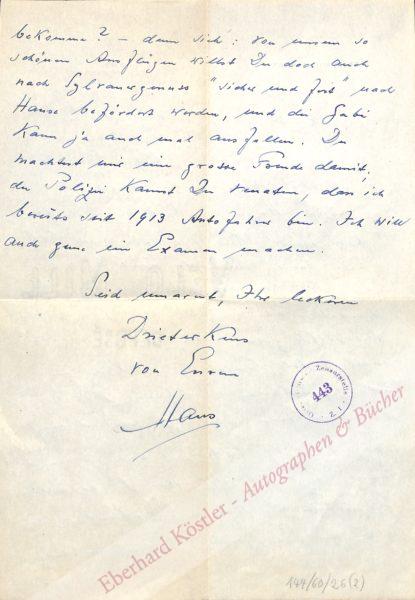 bekomme? – denn sieh': von unsern so
schönen Ausflügen willst Du doch auch
nach Sylvanergenuss "sicher und fest" nach
Hause befördert werden, und die Gabi
kann ja auch mal ausfallen. Du
machtest mir eine grosse Freude damit,
der Polizei kannst Du verraten, dass ich
bereits seit 1913 Autofahrer bin. Ich will
auch gerne ein Examen machen.
Seid umarmt, Ihr leckeren
von Eurem
Hans
Zensurstelle
443
Eberhard Köstler - Autographen & Bücher
144/60/26(2)